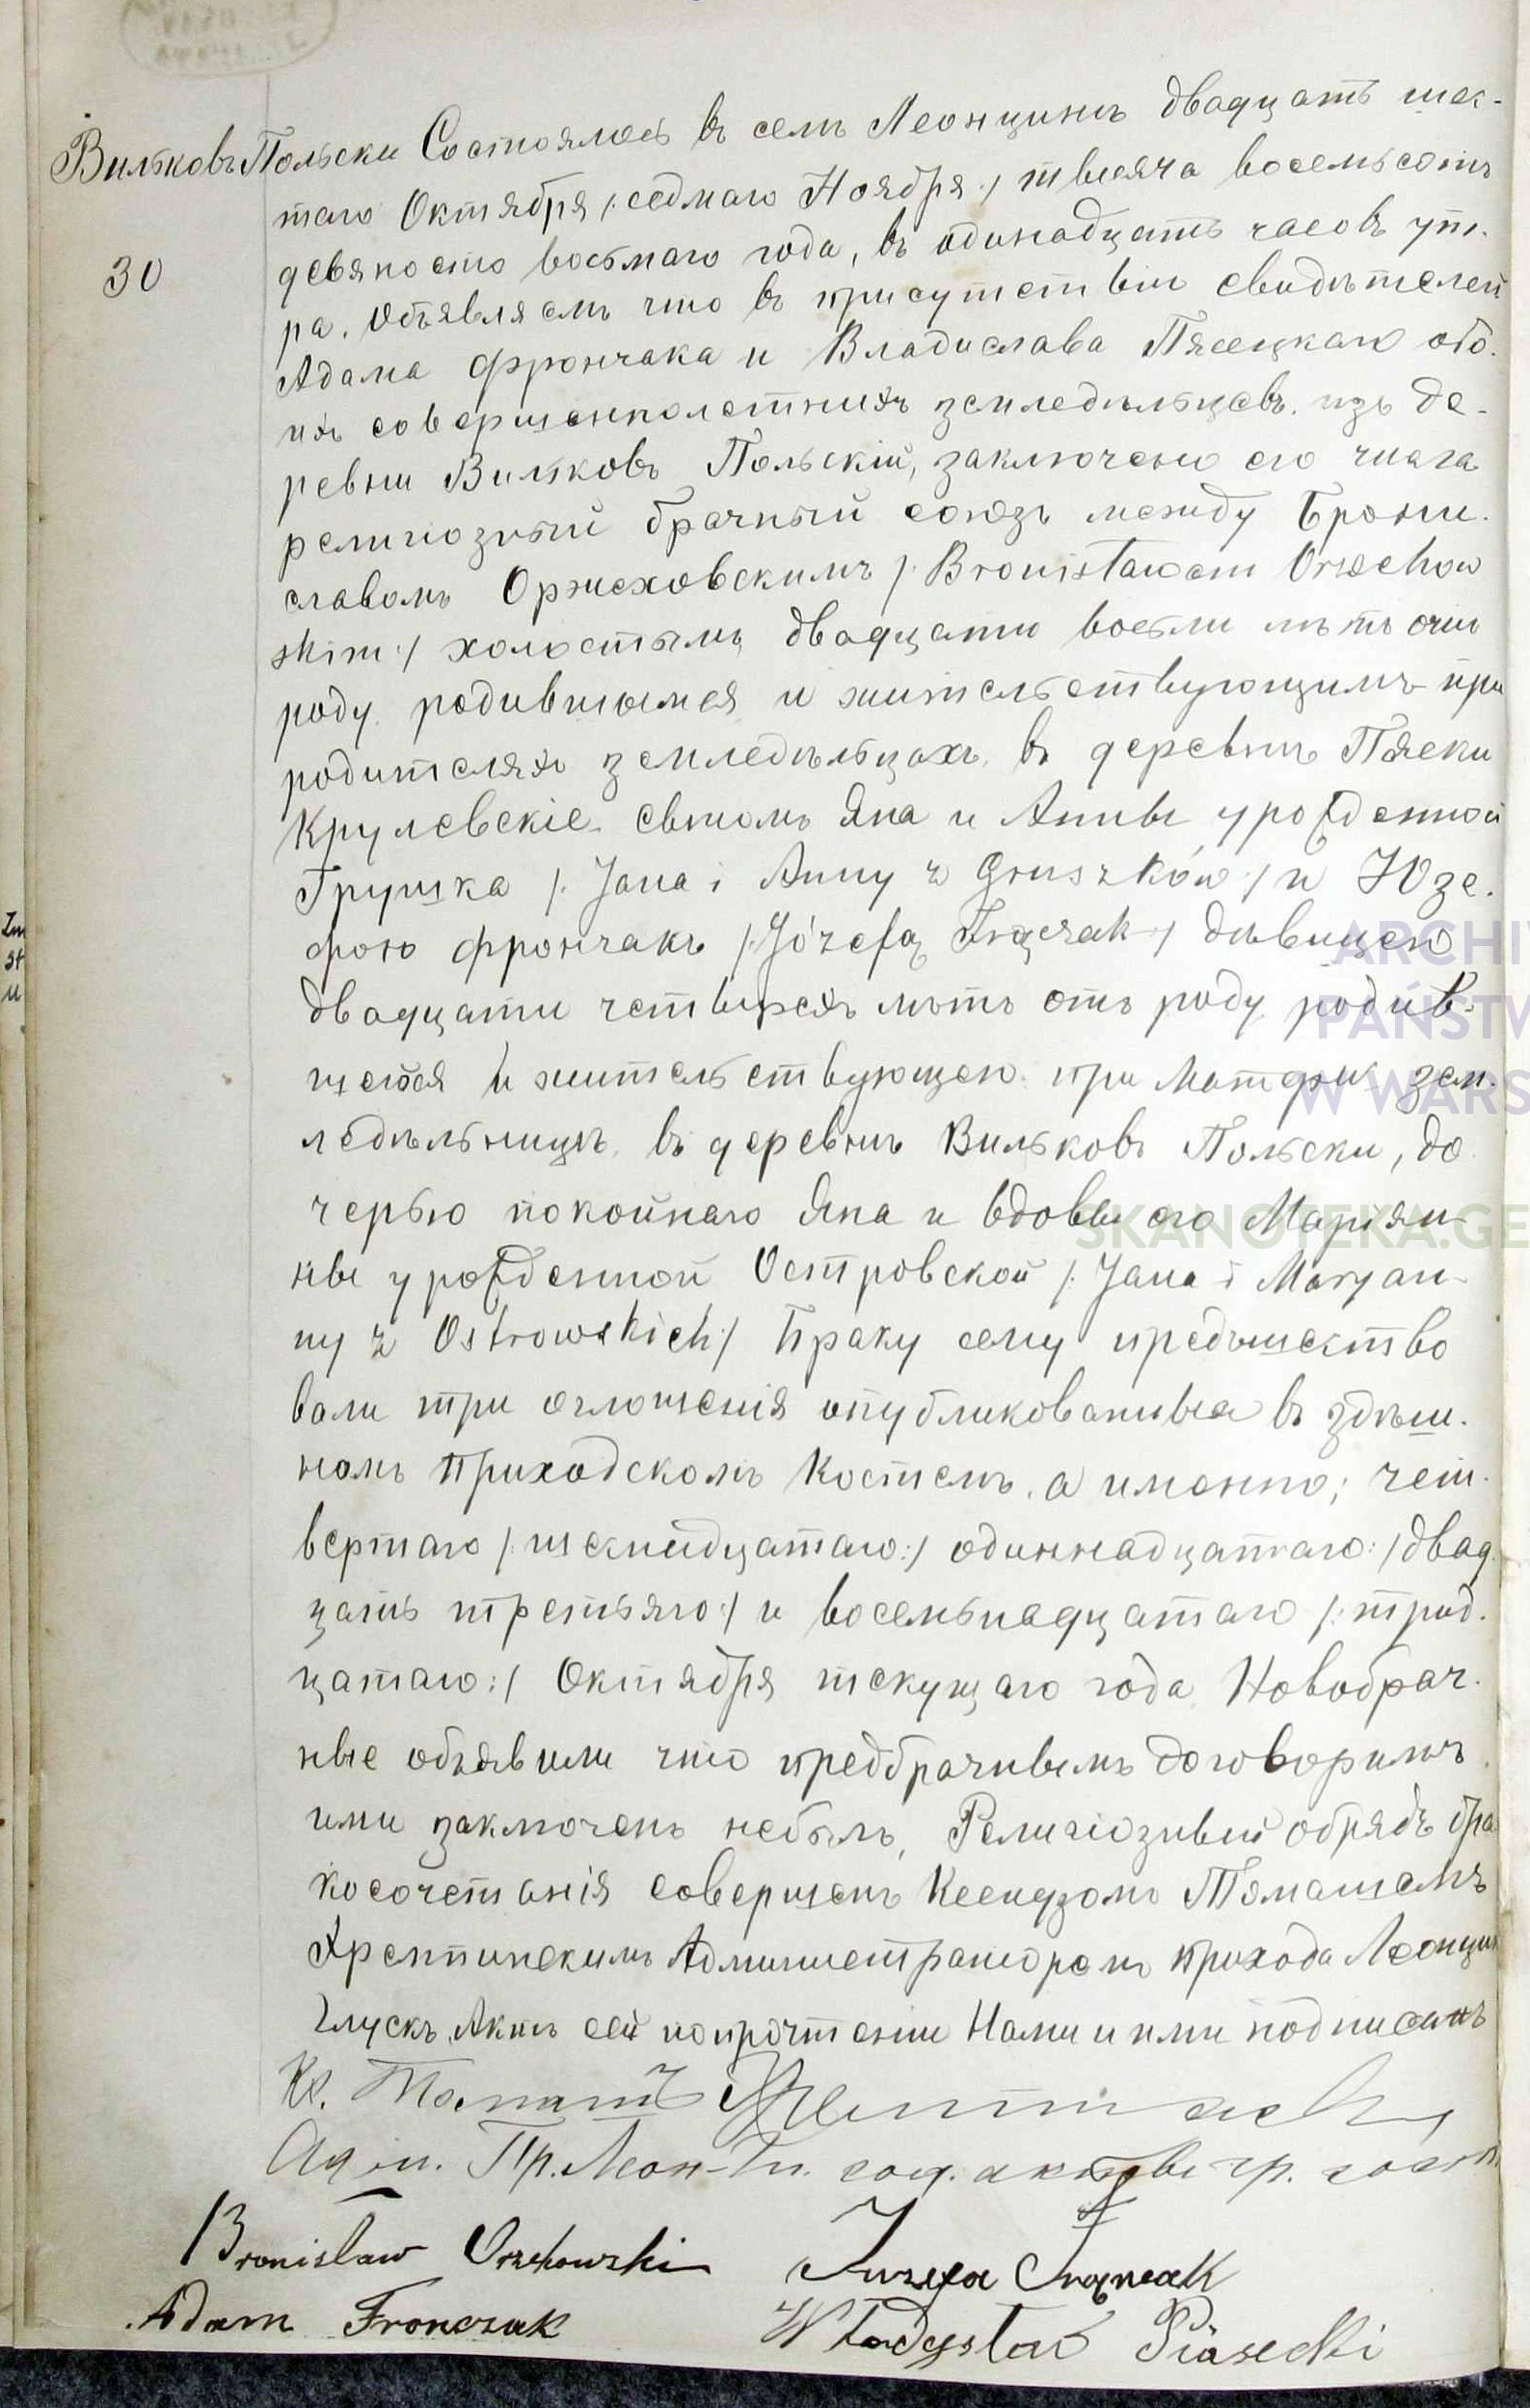 Вильковъ Польски Состоялось въ селѣ Леонцинѣ двадцать шес-
30
таго Октября /:седмаго Ноября:/ тысяча восемьсотъ
девяносто восьмаго года, въ одинадцать часовъ ут-
ра. Объявляемъ что въ присутствіи свидѣтелей
Адама Фрончака и Владислава Пясецкаго обо-
ихъ совершеннолетнихъ земледѣльцевъ изъ де-
ревни Вильковъ Польскій, заключено сего числа
религіозный брачный союзъ между Брони-
славомъ Оржеховскимъ /:Bronisławem Orzechow
skim:/ холостымъ двадцати восьми лѣтъ отъ
роду родившымся и жительствующимъ при
родителяхъ земледѣльцахъ въ деревнѣ Пяски
Крулевскіе сыномъ Яна и Анны урожденной
Грушка /:Jana i Anny z Gruszków:/ и Юзе-
фою Фрончакъ /:Józefą Frączak:/ дѣвицею
двадцати четырехъ лѣтъ отъ роду родив-
шеюся и жительствующею при матери зем-
ледѣльницѣ въ деревнѣ Вильковъ Польски, до
черью покойнаго Яна и вдовы его Маріян-
ны урожденной Островской /:Jana i Maryan-
ny z Ostrowskich:/ Браку сему предшество
вали три оглошенія опубликованныя въ здѣш-
номъ Приходскомъ Костелѣ, а именно; чет-
вертаго /:шестнадцатаго:/ одиннадцатаго: /двад
цать третьяго:/ и восемьнадцатаго /:трид-
цатаго:/ Октября текущаго года Новобрач-
ные объявили что предбрачнымъ договоримъ
ими заключенъ небылъ, Религіозный обрядъ бра
косочетанія совершенъ Ксендзомъ Томашемъ
Администраторомъ прихода Леонцин
Глускъ, Актъ сей попрочтеніи Нами и ими подписанъ
Кс. Томашъ
Адм. Пр. Леон-Гл. сод. акты гр. сост.
Bronisław Orzchowski Juzefa Frącak
Adam Fronczak Władysław Piasecki
Im
st
u
ARCHI
PAŃSTW
W WARS
SKANOTEKA.GE